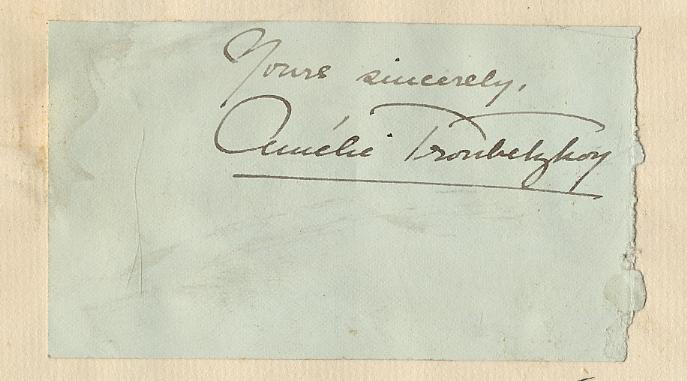 Yours sincerely,
Amélie Troubetzkoy